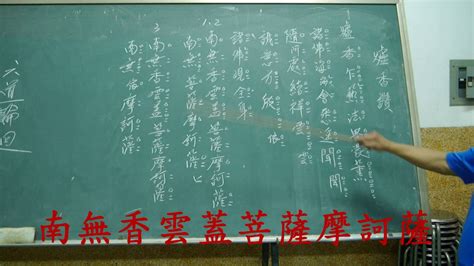 爐香讚
爐香乍熱法界蒙薰
諸佛海會悉遙聞 聞
結祥雲
誠意方殷
諸佛現全身
1.2
南無香雲蓋菩薩摩訶薩
南無 摩訶薩
3 南無香雲蓋菩薩摩訶薩
南無 摩訶薩
六道輪迴
南無香雲蓋菩薩摩訶薩